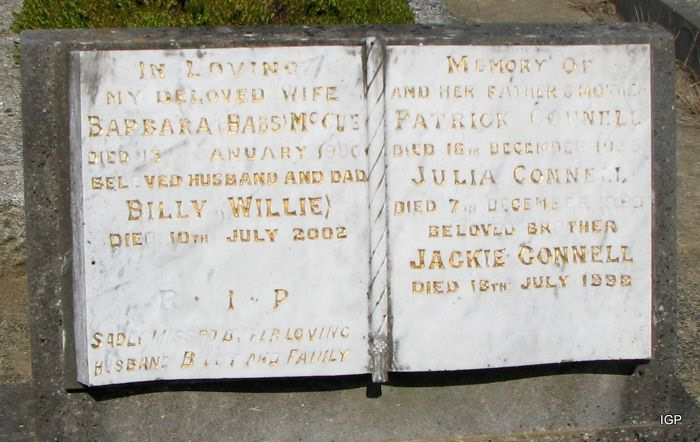 IN LOVING
MY BELOVED WIFE
BARBARA (BABS) MCCUE
DIED JANUARY
BELOVED HUSBAND AND DAD
BILLY (WILLIE)
DIED 10TH JULY 2002
R · I · P
SADLY MISSED BY HER LOVING
HUSBAND BILLY AND FAMILY
MEMORY OF
AND HER FATHER & MOTHER
PATRICK CONNELL
DIED 18TH DECEMBER
JULIA CONNELL
DIED 7TH DECEMBER
BELOVED BROTHER
JACKIE CONNELL
DIED 18TH JULY 1998
IGP